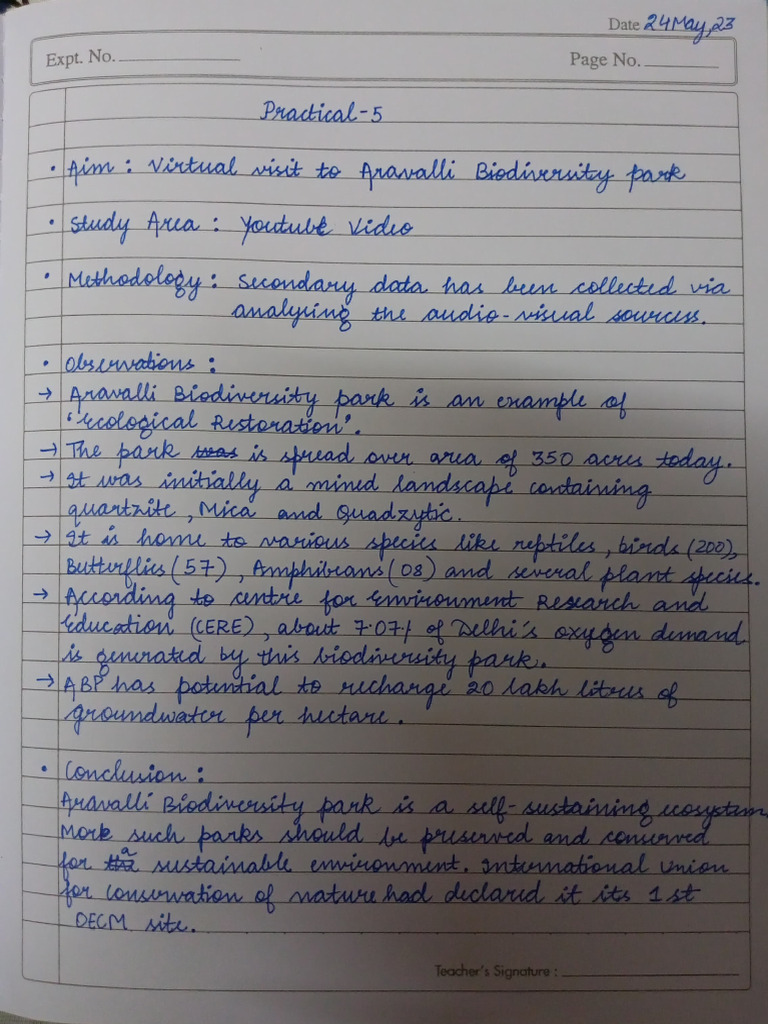 Date 24 May, 23
Expt. No.
Page No.
Practical-5
• Aim : Virtual visit to Aravalli Biodiversity park
• Study Area : Youtube Video
• Methodology : Secondary data has been collected via
analysing the audio-visual sources.
• Observations :
→ Aravalli Biodiversity park is an example of
'Ecological Restoration'.
→ The park was is spread over area of 350 acres today.
→ It was initially a mined landscape containing
quartzite, Mica and Quadzytic.
→ It is home to various species like reptiles, birds (200),
Butterflies (57), Amphibians (08) and several plant species.
→ According to centre for Environment Research and
Education (CERE), about 7.07% of Delhi's oxygen demand
is generated by this biodiversity park.
→ ABP has potential to recharge 20 lakh litres of
groundwater per hectare.
• Conclusion :
Aravalli Biodiversity park is a self-sustaining ecosystem.
More such parks should be preserved and conserved
for a sustainable environment. International union
for conservation of nature had declared it its 1st
OECM site.
Teacher's Signature :